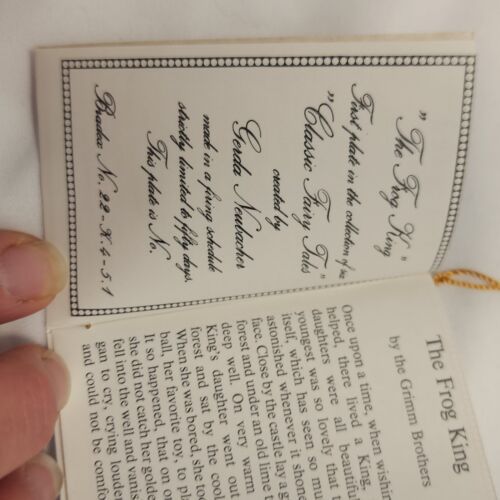 "The Frog King"
First plate in the collection of six
"Classic Fairy Tales"
created by
Gerda Neubacher
made in a firing schedule
strictly limited to fifty days.
This plate is No.
Bradex No. 22-K.4-5.1
The Frog King
by the Grimm Brothers
Once upon a time, when wishin
helped, there lived a King,
daughters were all beautiful
youngest was so lovely that t
itself, which has seen so mu
astonished whenever it shone
face. Close by the castle lay a g
forest and under an old lime t
deep well. On very warm
King's daughter went out
forest and sat by the cool
When she was bored, she too
ball, her favorite toy, to pl
It so happened, that on on
she did not catch her golde
fell into the well and vanis
gan to cry, crying louder
and could not be comfo